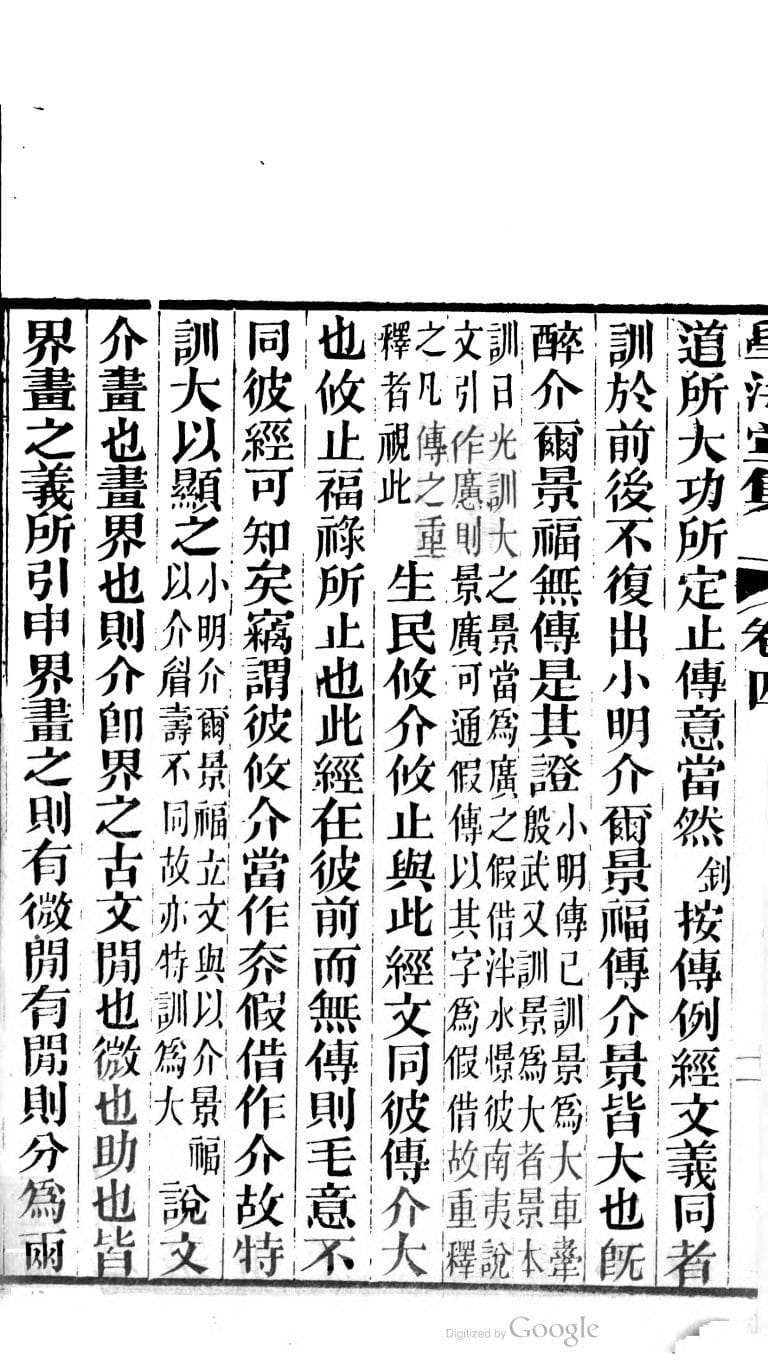 學海堂集 卷四 二
道所大功所定止傳意當然釗按傳例經文義同者
訓於前後不復出小明介爾景福傳介景皆大也旣
醉介爾景福無傳是其證小明傳已訓景爲大車舝
殷武又訓景爲大者景本
訓日光訓大之景當爲廣之假借泮水憬彼南夷說
文引作懬則景廣可通假傳以其字爲假借故重釋
之凡傳之重
釋者視此
生民攸介攸止與此經文同彼傳介大
也攸止福祿所止也此經在彼前而無傳則毛意不
同彼經可知矣竊謂彼攸介當作夰假借作介故特
訓大以顯之小明介爾景福立文與以介景福
以介眉壽不同故亦特訓爲大
說文
介畫也畫界也則介卽界之古文閒也微也助也皆
界畫之義所引申界畫之則有微閒有閒則分爲兩
Digitized by Google